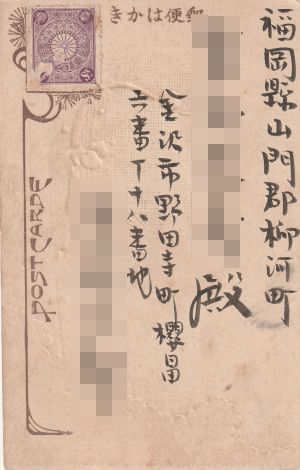 郵便はかき
福岡縣山門郡柳河町
殿
金沢市野田寺町櫻畠
六番丁十八番地
POSTCARDE